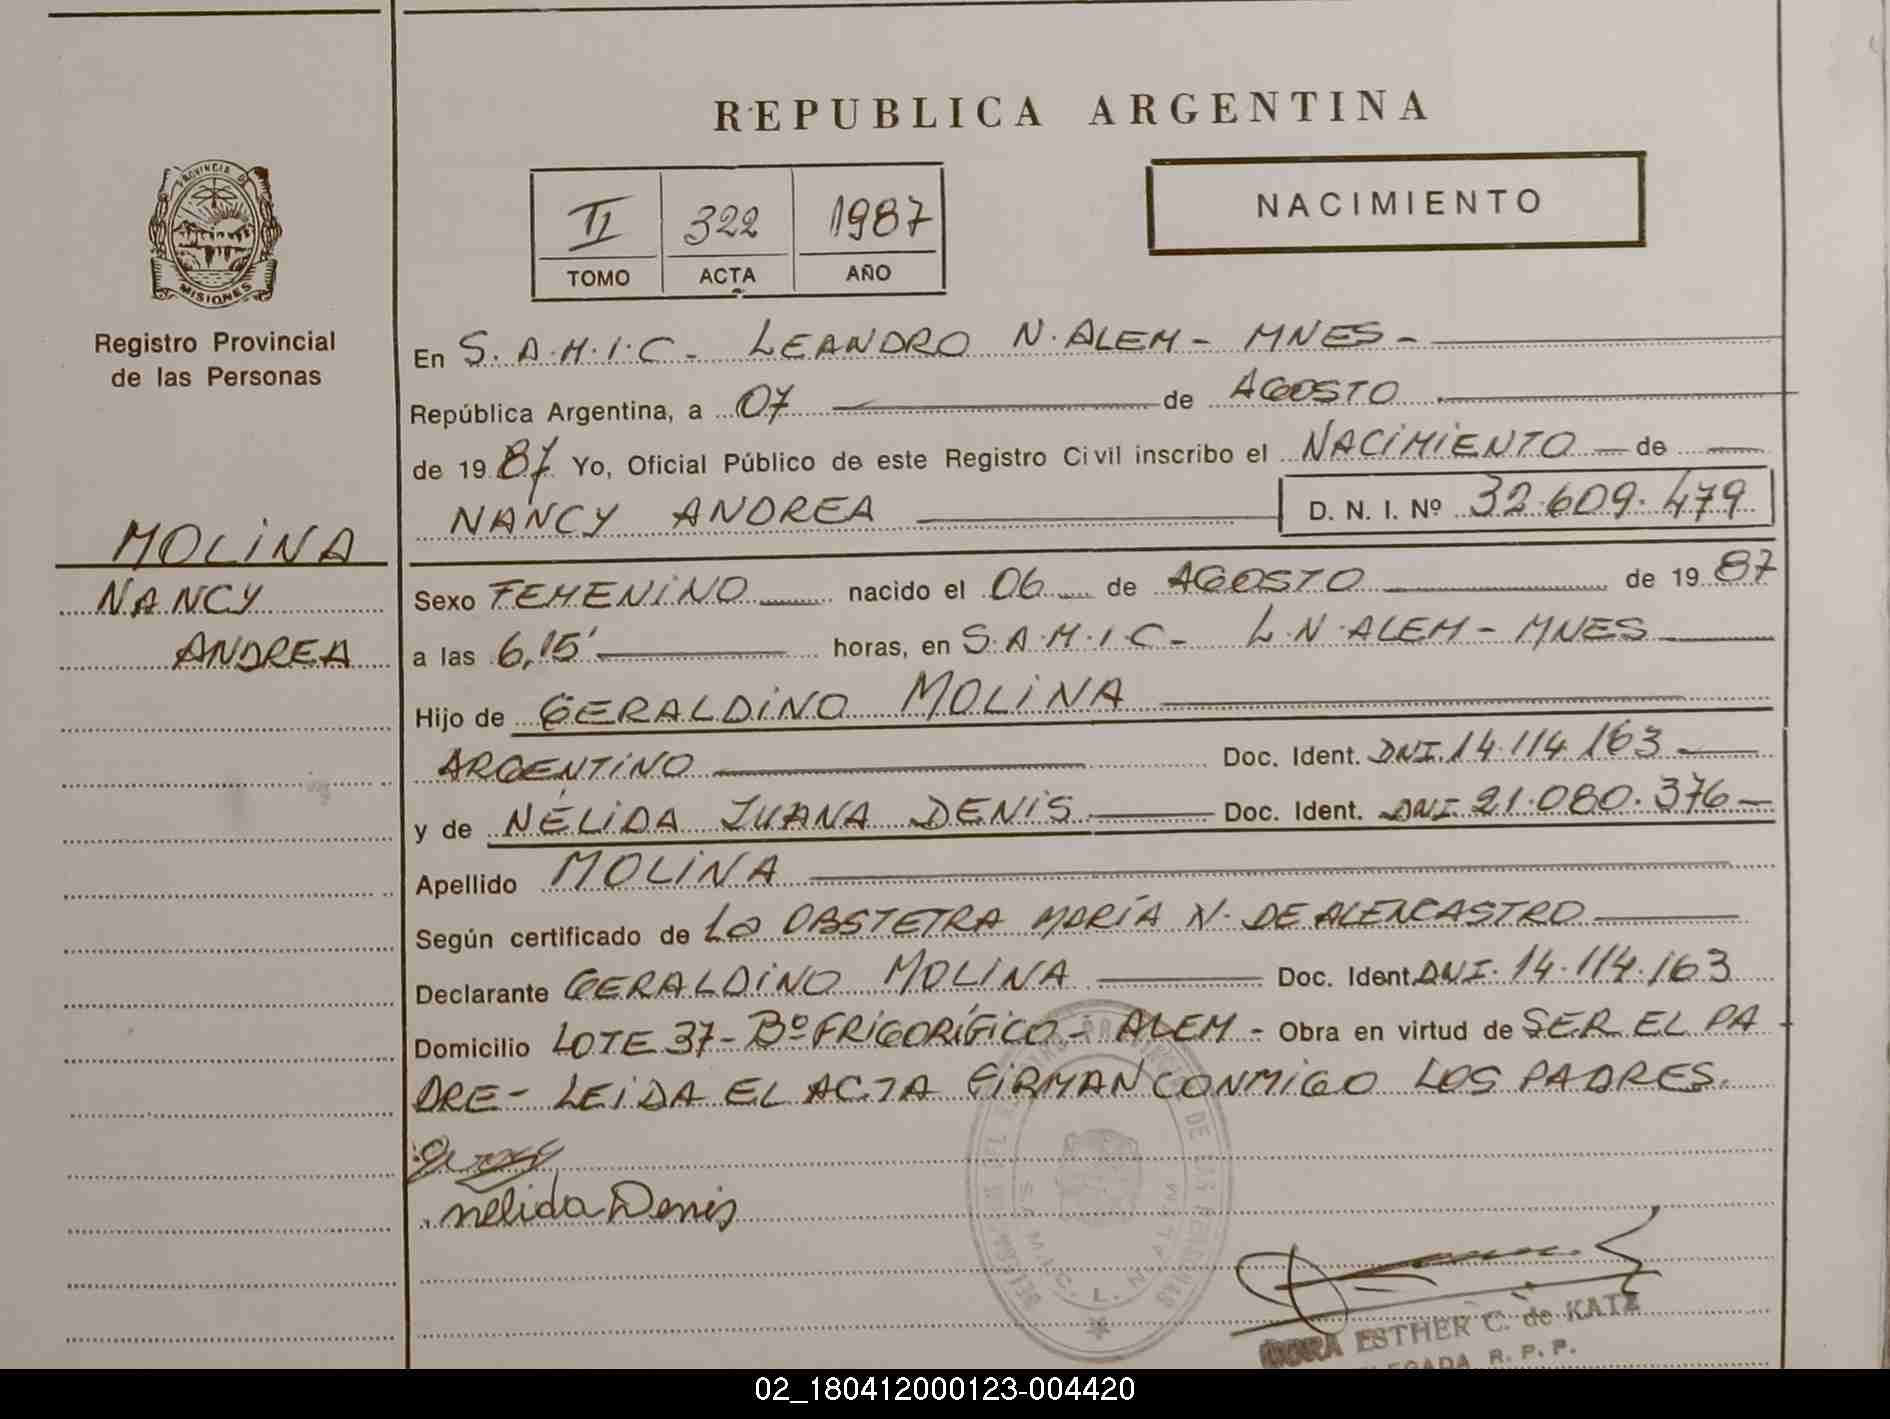 REPUBLICA ARGENTINA
PROVINCIA DE
MISIONES
Registro Provincial
de las Personas
II 322 1987
TOMO ACTA AÑO
NACIMIENTO
MOLINA
NANCY
ANDREA
En S.A.M.I.C. LEANDRO N. ALEM - MNES -
República Argentina, a 07 de AGOSTO
de 1987 Yo, Oficial Público de este Registro Civil inscribo el NACIMIENTO de
NANCY ANDREA D. N. I. Nº 32.609.479
Sexo FEMENINO nacido el 06 de AGOSTO de 1987
a las 6,15' horas, en S.A.M.I.C - L.N.ALEM - MNES
Hijo de GERALDINO MOLINA
ARGENTINO Doc. Ident. DNI. 14.114.163
y de NÉLIDA JUANA DENIS Doc. Ident. DNI. 21.080.376 -
Apellido MOLINA
Según certificado de La OBSTETRA MARÍA N. DE ALENCASTRO
Declarante GERALDINO MOLINA Doc. Ident. DNI. 14.114.163
Domicilio LOTE 37 - Bº FRIGORÍFICO - ALEM - Obra en virtud de SER EL PA
DRE - LEIDA EL ACTA FIRMAN CONMIGO LOS PADRES.
nélida Denis
DE LAS PERSONAS
L. N. ALEM
DORA ESTHER C. de KATZ
DELEGADA R. P. P.
02_180412000123-004420